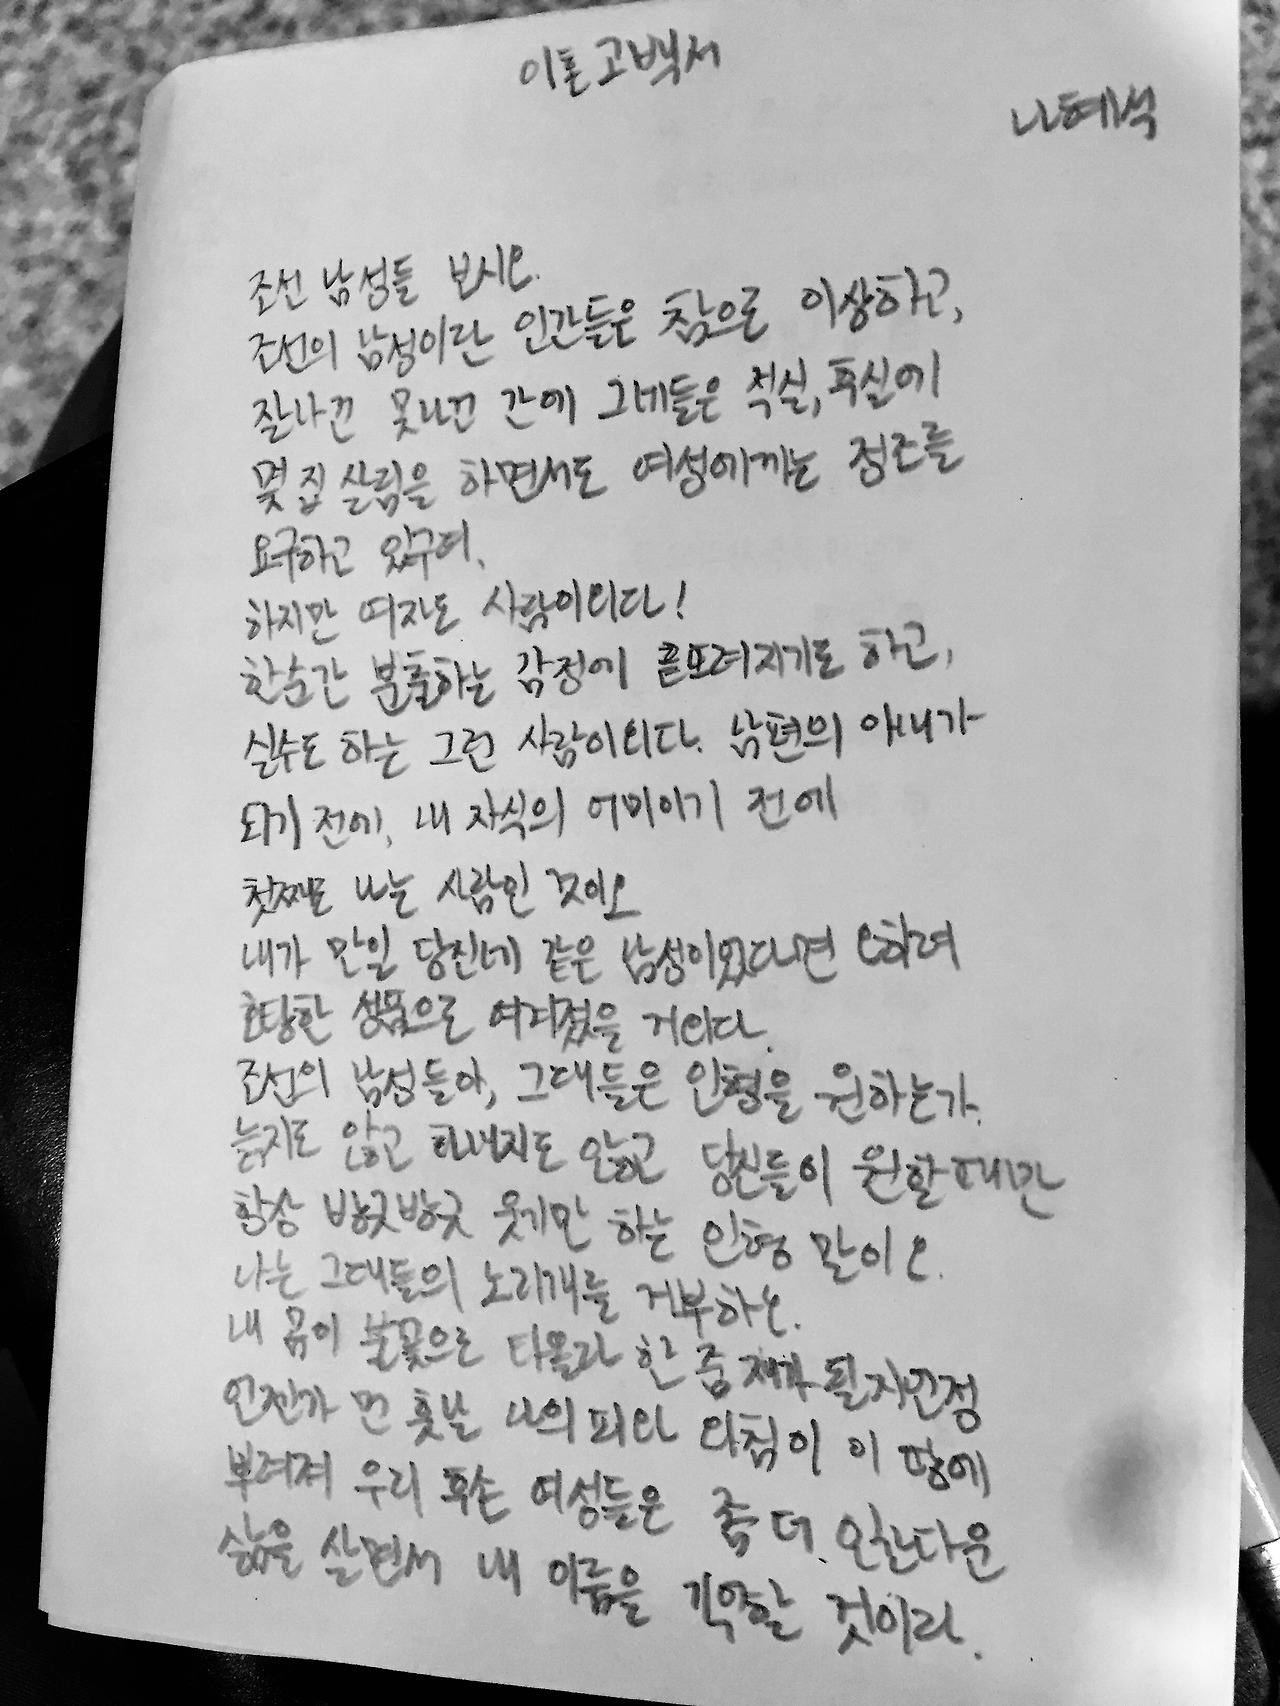 이혼 고백서
나혜석
조선 남성들 보시오.
조선의 남성이란 인간들은 참으로 이상하고,
잘나건 못나건 간에 그네들은 적실, 후실에
몇 집 살림을 하면서도 여성에게는 정조를
요구하고 있구려.
하지만 여자도 사람이외다!
한순간 분출하는 감정에 흩뜨려지기도 하고,
실수도 하는 그런 사람이외다. 남편의 아내가
되기 전에, 내 자식의 어미이기 전에
첫째로 나는 사람인 것이오
내가 만일 당신네 같은 남성이었다면 오히려
호탕한 성품으로 여겨졌을 거외다.
조선의 남성들아, 그대들은 인형을 원하는가.
늙지도 않고 화내지도 않고 당신들이 원할때만
항상 방긋방긋 웃기만 하는 인형 말이오.
나는 그대들의 노리개를 거부하오.
내 몸이 불꽃으로 타올라 한 줌 재가 될지언정
언젠가 먼 훗날 나의 피와 외침이 이 땅에
뿌려져 우리 후손 여성들은 좀 더 인간다운
삶을 살면서 내 이름을 기억할 것이라.